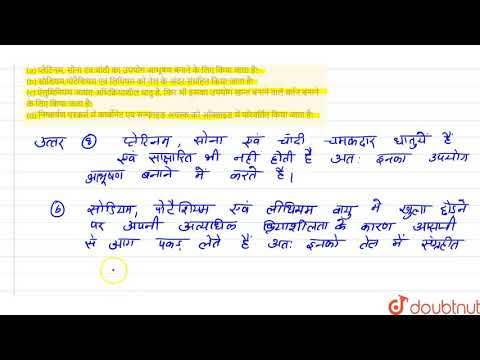 (a) प्लैटिनम, सोना एवं चांदी का उपयोग आभूषण बनाने के लिए किया जाता है।
(b) सोडियम, पोटैशियम एवं लिथियम को तेल के अंदर संग्रहीत किया जाता है।
(c) ऐलुमिनियम अत्यंत अभिक्रियाशील धातु है, फिर भी इसका उपयोग खाना बनाने वाले बर्तन बनाने
के लिए किया जाता है।
(d) निष्कर्षण प्रक्रम में कार्बोनेट एवं सल्फाइड अयस्क को ऑक्साइड में परिवर्तित किया जाता है।
उत्तर (a) प्लेटिनम, सोना एवं चाँदी चमकदार धातुयें हैं
एवं संक्षारित भी नही होती है अतः इनका उपयोग
आभूषण बनाने में करते है।
(b) सोडियम, पोटैशियम एवं लीथियम वायु में खुला छोड़ने
पर अपनी अत्याधिक क्रियाशीलता के कारण आसानी
से आग पकड़ लेते हैं अतः इनको तेल में संग्रहीत
doubtnut